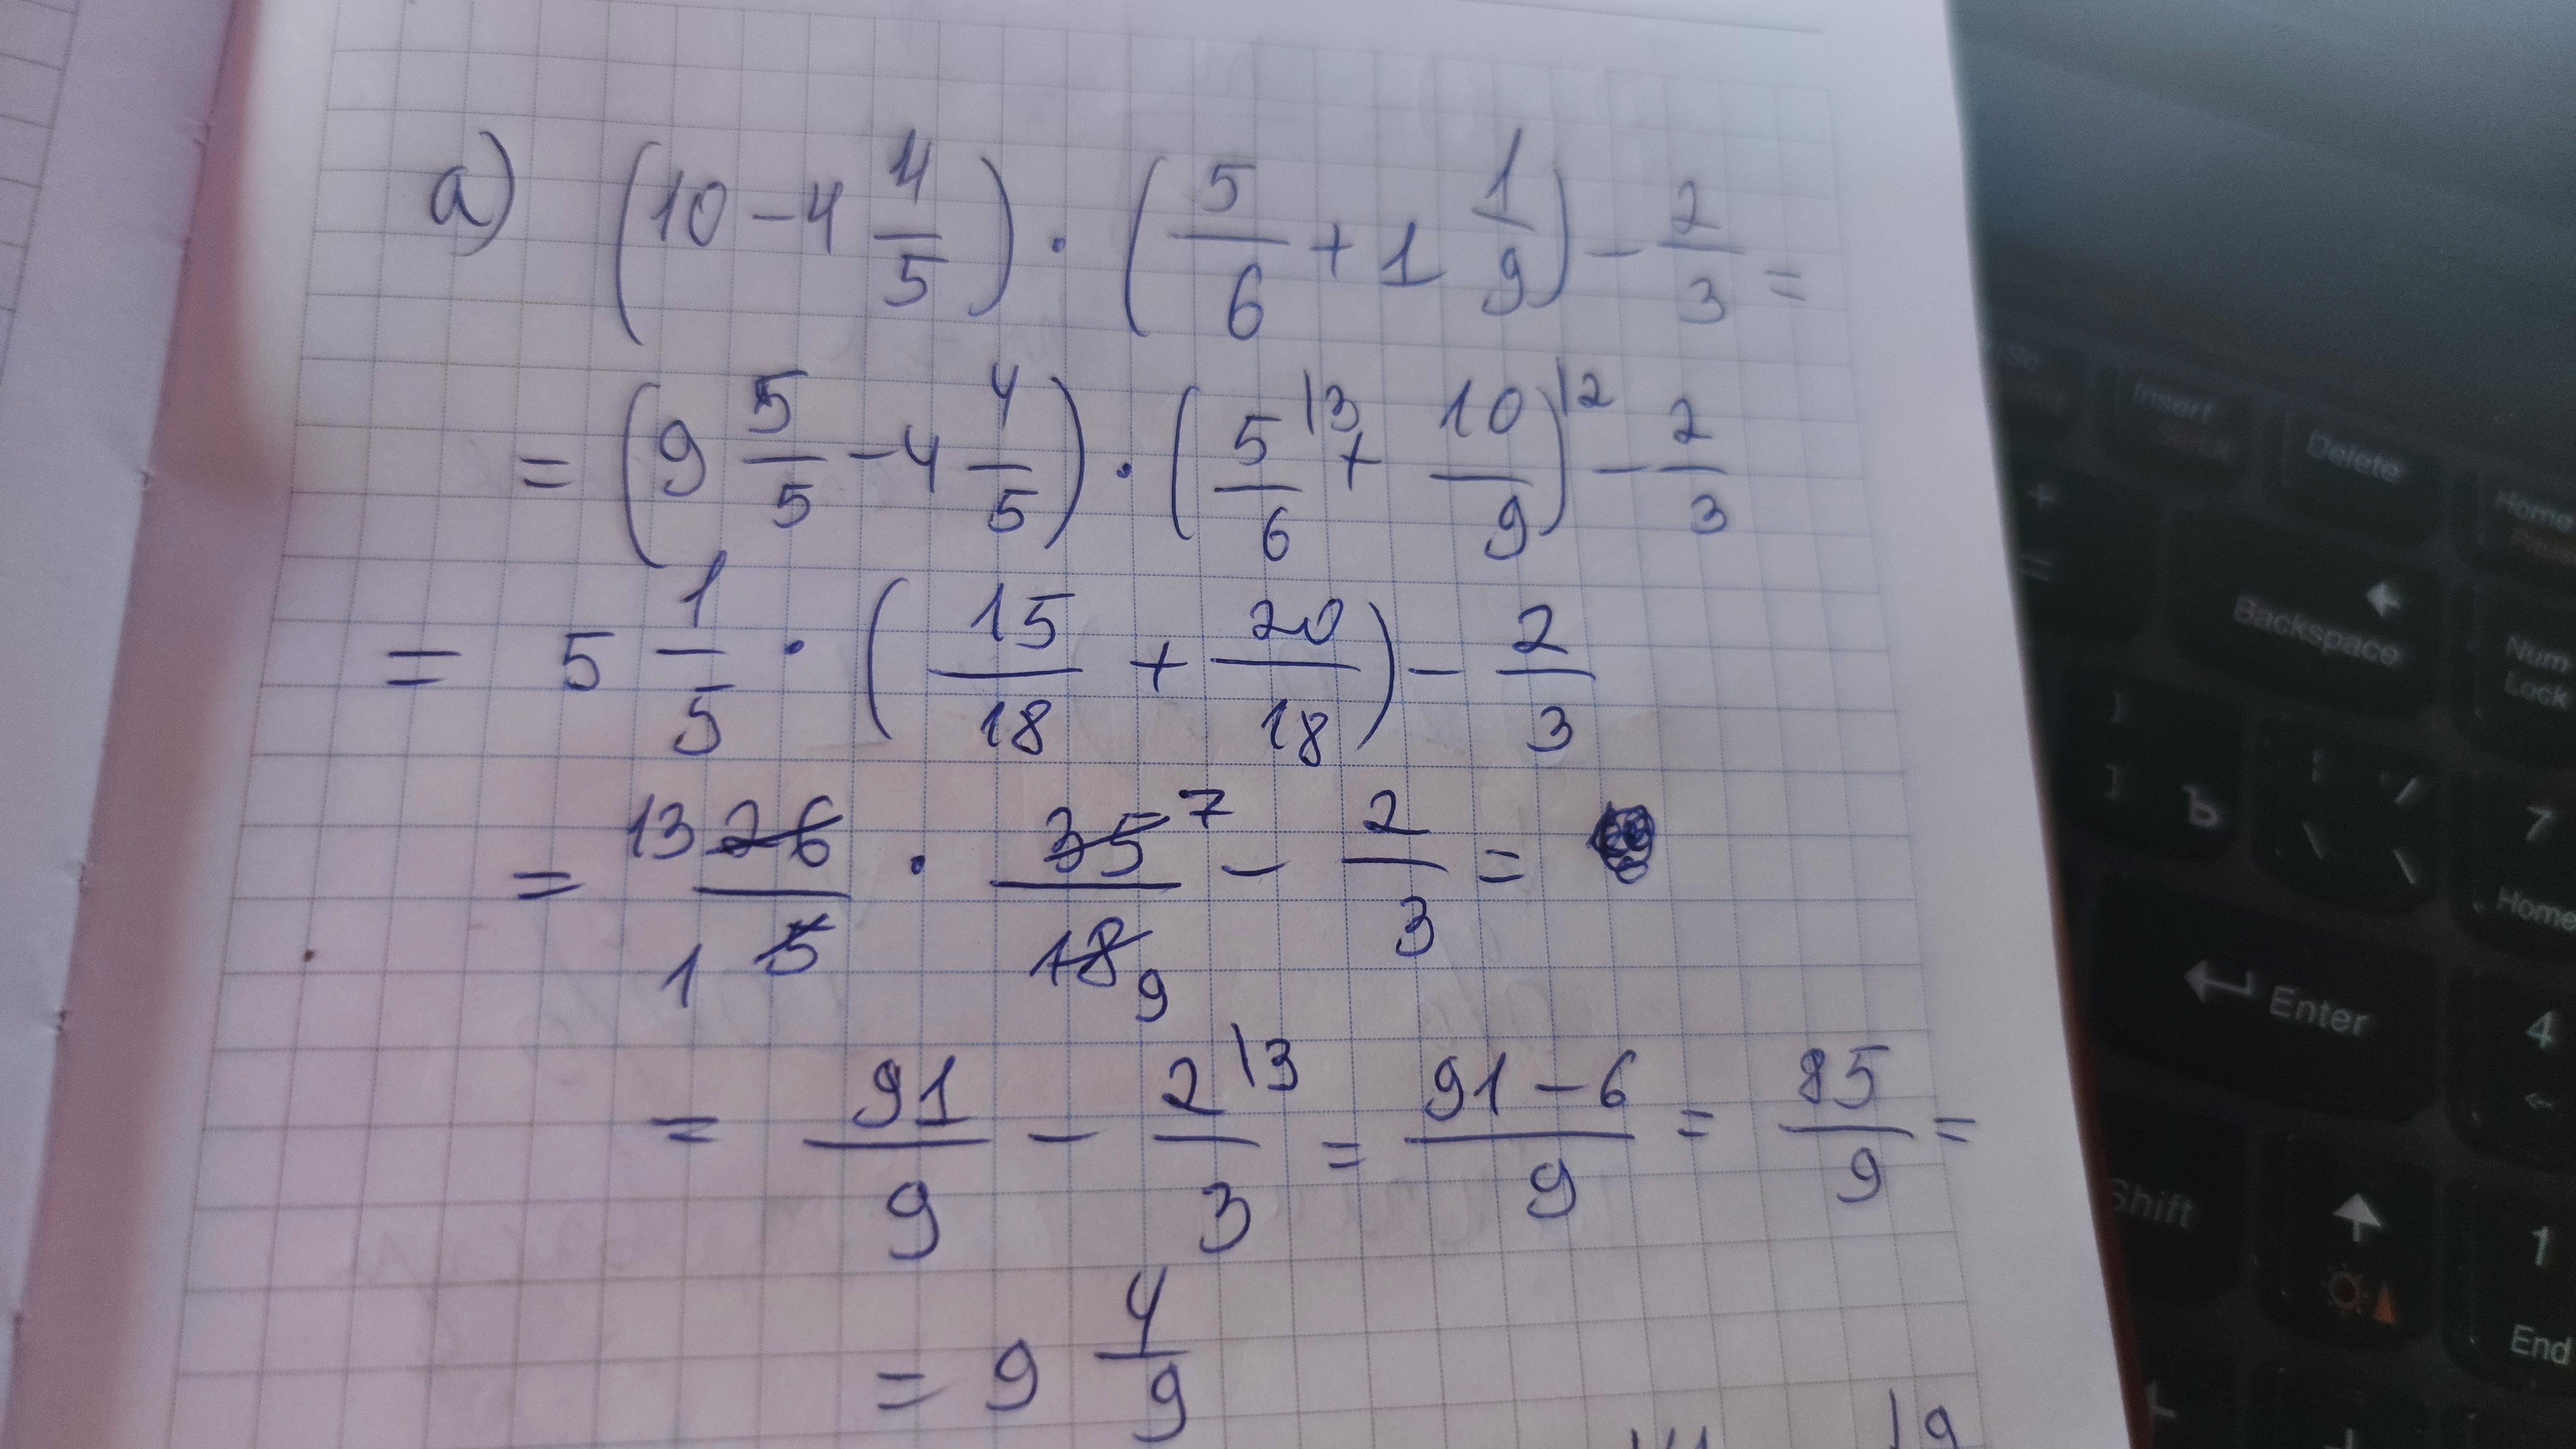 а) (10 - 4 4/5) · (5/6 + 1 1/9) - 2/3 =
= (9 5/5 - 4 4/5) · (5/6 \3 + 10/9) \2 - 2/3
= 5 1/5 · (15/18 + 20/18) - 2/3
= 13 26/5 1 · 35 7/18 9 - 2/3 =
= 91/9 - 2/3 \3 = (91 - 6)/9 = 85/9 =
= 9 4/9
Insert
Delete
Home
+
=
Backspace
Num Lock
}
]
Ъ
|
/
\
\
7
Home
Enter
4
←
Shift
1
End